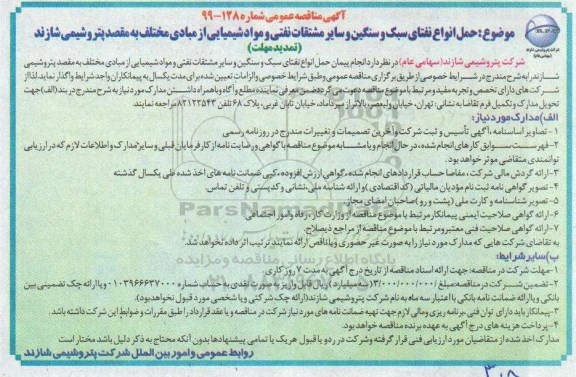 آگهی مناقصه عمومی شماره ۱۲۸-۹۹
موضوع: حمل انواع نفتای سبک و سنگین و سایر مشتقات نفتی و مواد شیمیایی از مبادی مختلف به مقصد پتروشیمی شازند
(تمدید مهلت)
شرکت پتروشیمی شازند (سهامی عام) در نظر دارد انجام پیمان حمل انواع نفتای سبک و سنگین و سایر مشتقات نفتی و مواد شیمیایی از مبادی مختلف به مقصد پتروشیمی
شازند را به شرح مندرج در شرایط خصوصی از طریق برگزاری مناقصه عمومی وطبق شرایط خصوصی والزامات تعیین شده برای مدت یکسال به پیمانکاران واجد شرایط واگذار نماید. لذا از
شرکت های دارای تخصص و تجربه مفید و مرتبط با موضوع مناقصه دعوت می گردد ضمن معرفی نماینده مطلع و آگاه و باهمراه داشتن مدارک مورد نیاز به شرح مندرج در بند (الف) جهت
تحویل مدارک و تکمیل فرم تقاضا به نشانی: تهران، خیابان ولیعصر، بالاتر از میرداماد، خیابان تابان غربی، پلاک ۶۸ تلفن ۸۲۱۲۲۵۴۳ مراجعه نمایند.
الف) مدارک مورد نیاز:
۱- تصاویر اساسنامه، آگهی تأسیس و ثبت شرکت و آخرین تصمیمات و تغییرات مندرج در روزنامه رسمی
۲- فهرست سوابق کارهای انجام شده، در حال انجام و یا مشابه موضوع مناقصه با گواهی و رضایت نامه از کارفرمایان قبلی و سایر مدارک و اطلاعات لازم که در ارزیابی
توانمندی متقاضی موثر خواهد بود.
۳- ارائه گردش مالی شرکت، مفاصا حساب قراردادهای انجام شده، گواهی ارزش افزوده، کپی ضمانت نامه های اخذ شده طی یکسال گذشته
۴- تصویر گواهی نامه ثبت نام مؤدیان مالیاتی (کد اقتصادی) و ارائه شناسه ملی، نشانی و کدپستی و تلفن تماس.
۵- تصویر شناسنامه و کارت ملی (پشت و رو) صاحبان امضای مجاز.
۶- ارائه گواهی صلاحیت ایمنی پیمانکار مرتبط با موضوع مناقصه از وزارت کار، رفاه و امور اجتماعی
۷- ارائه گواهی صلاحیت فنی معتبر و مرتبط با موضوع مناقصه از مراجع ذیصلاح.
به تقاضای شرکت هایی که مدارک مورد نیاز را به صورت غیر حضوری و یا ناقص ارائه نمایند ترتیب اثر داده نخواهد شد.
ب) سایر شرایط:
۱- مهلت شرکت در مناقصه: جهت ارائه اسناد مناقصه از تاریخ درج آگهی به مدت ۷ روز کاری
۲- تضمین شرکت در مناقصه: مبلغ ۳/۰۰۰/۰۰۰/۰۰۰ (سه میلیارد) ریال قابل واریز به صورت نقدی به حساب شماره ۰۱۰۳۹۶۶۶۳۷۰۰۰ و یا ارائه چک تضمینی بین
بانکی و یا ارائه ضمانت نامه بانکی با اعتبار سه ماه به نام شرکت پتروشیمی شازند (ارائه چک شرکتی و یا شخصی مورد قبول نخواهد بود).
۳- پیمانکار باید دارای توان فنی، برنامه ریزی و مالی لازم جهت تهیه ضمانت نامه های مورد نیاز شرکت در مناقصه و یا عقد قرارداد را طبق مقررات و ضوابط این شرکت داشته باشد.
۴- پرداخت هزینه های درج آگهی به عهده برنده مناقصه خواهد بود.
مدارک اخذ شده از متقاضیان مورد ارزیابی فنی قرار گرفته و شرکت در رد و یا قبول هر یک یا تمامی پیشنهادها بدون آنکه محتاج به ذکر دلیل باشد مختار است
روابط عمومی و امور بین الملل شرکت پتروشیمی شازند
ParsNamadData